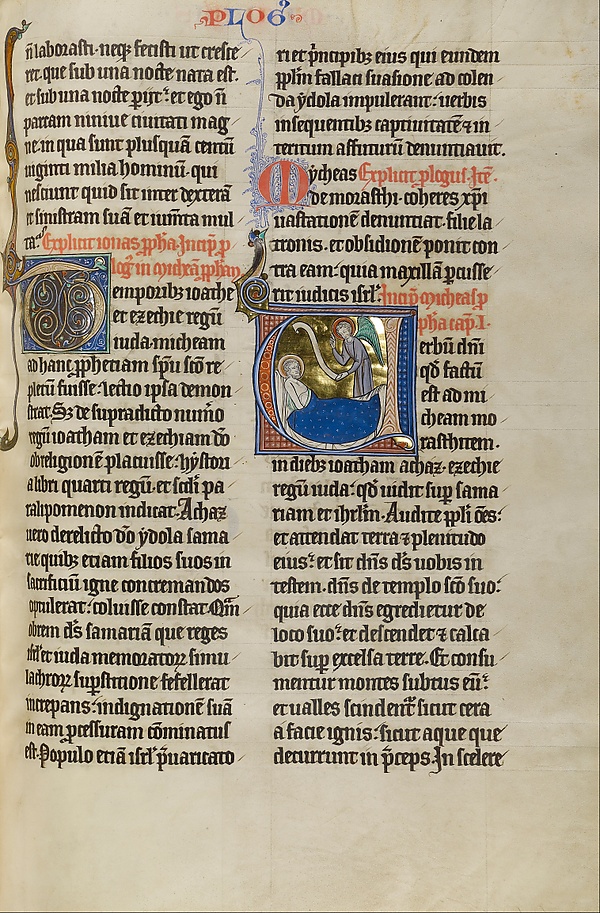 PLOG᷒
ñ laborasti. neq; fecisti ut cresce
ret. que sub una nocte nata est.
et sub una nocte pijt: et ego ñ
parcam ninive civitati mag
ne. in qua sunt plusquā centū
viginti milia hominū. qui
nesciunt quid sit inter dexterā
et sinistram suā et iumēta mul
ta. Explicit ionas ppha. Incip p
log in micheā ppham
Temporibz ioathe
et ezechie regū
iuda. micheam
ad hanc pphetiam spū scō re
pletū fuisse. lectio ipsa demon
strat. Sz de supradicto num̄o
regū ioatham et ezechiam dō
ob religionē placuisse. hystori
a libri quarti regū. et scdī pa
ralipomenon indicat. Achaz
vero derelicto dō ydola sama
rie quibz etiam filios suos in
sacrificiū igne concremandos
optulerat: coluisse constat. Qm̄
obrem ds samariā que reges
isrl et iuda memoratoꝝ simu
lachroꝝ supstitione fefellerat
increpans: indignationē suā
in eam pcessuram cōminatus
est. Populo etiā isrl pvaricato
ri et pncipibz eius qui eundem
pplm fallaci suasione ad colen
da ydola impulerant: verbis
insequentibz captivitatē ⁊ in
teritum affuturū denuntiavit.
Mycheas Explicit plogus. Itē.
de morasthi. coheres xpi
vastationē denuntiat. filie la
tronis. et obsidionē ponit con
tra eam: quia maxillā pcusse
rit iudicis isrl. Incip micheas p
pha cap. I.
Verbū dn̄i
qd factū
est ad mi
cheam mo
rasthitem.
in diebz ioatham achaz. ezechie
regū iuda: qd vidit sup sama
riam et ihrlm. Audite ppli ōes:
et attendat terra ⁊ plenitudo
eius: et sit dns ds vobis in
testem. dns de templo scō suo:
quia ecce dns egredietur de
loco suo: et descendet ⁊ calca
bit sup excelsa terre. Et consu
mentur montes subtus eū:
et valles scindent᷑ sicut cera
a facie ignis: sicut aque que
decurrunt in pceps. In scelere